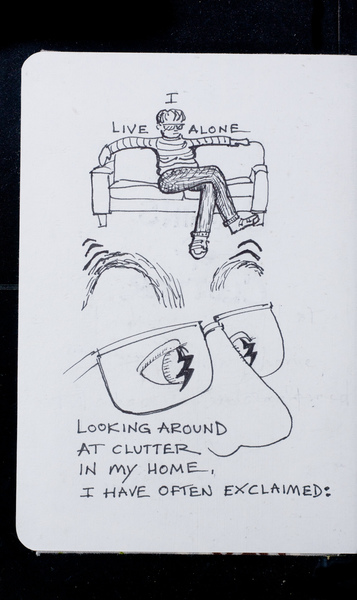 I
LIVE ALONE
LOOKING AROUND
AT CLUTTER
IN MY HOME,
I HAVE OFTEN EXCLAIMED: